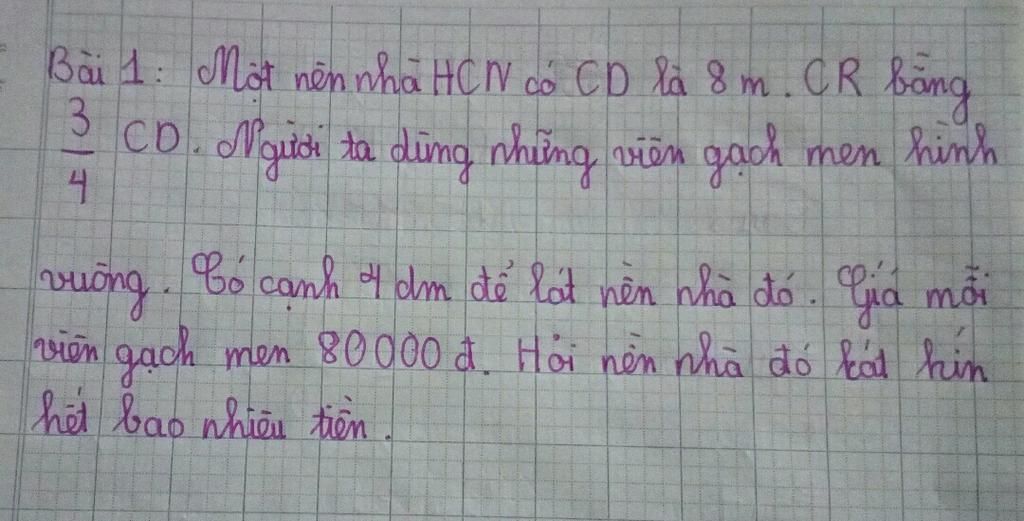 Bài 1: Một nền nhà HCN có CD là 8 m. CR bằng
3/4 CD. Người ta dùng những viên gạch men hình
vuông. Có cạnh 4 dm để lát nền nhà đó. Giá mỗi
viên gạch men 80000 đ. Hỏi nền nhà đó lát kín
hết bao nhiêu tiền.